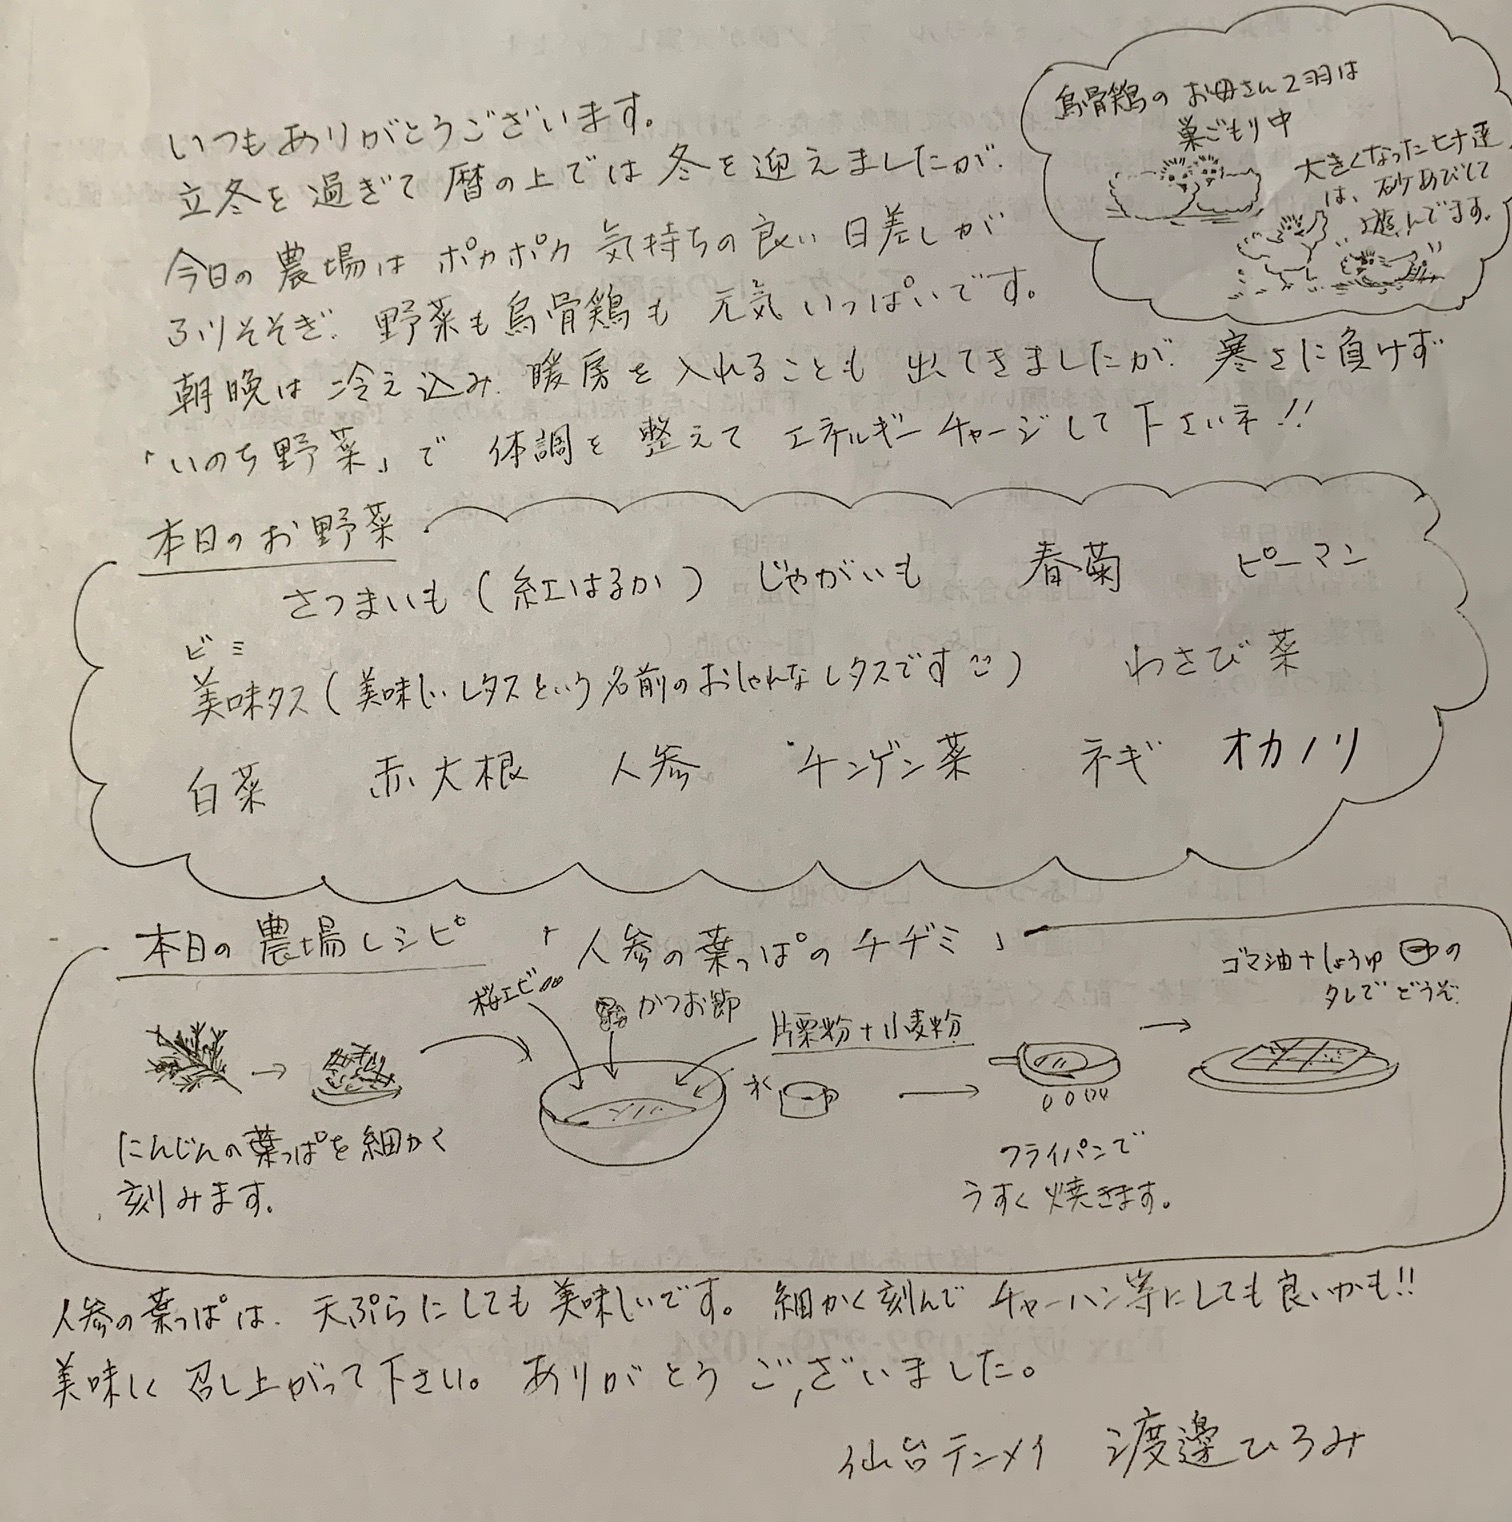 いつもありがとうございます。
立冬を過ぎて暦の上では冬を迎えましたが、
今日の農場はポカポカ気持ちの良い日差しが
ふりそそぎ、野菜も烏骨鶏も元気いっぱいです。
朝晩は冷え込み、暖房を入れることも出てきましたが、寒さに負けず
「いのち野菜」で体調を整えてエネルギーチャージして下さいネ!!
烏骨鶏のお母さん2羽は
巣ごもり中
大きくなったヒナ達
は、砂あびして
遊んでます。
本日のお野菜
さつまいも(紅はるか) じゃがいも 春菊 ピーマン
ビミ
美味タス(美味しいレタスという名前のおしゃれなレタスです) わさび菜
白菜 赤大根 人参 チンゲン菜 ネギ オカノリ
本日の農場レシピ 「人参の葉っぱのチヂミ」
桜エビ
かつお節
片栗粉+小麦粉
水
にんじんの葉っぱを細かく
刻みます。
フライパンで
うすく焼きます。
ゴマ油+しょうゆの
タレでどうぞ。
人参の葉っぱは、天ぷらにしても美味しいです。細かく刻んでチャーハン等にしても良いかも!!
美味しく召し上がって下さい。ありがとうございました。
仙台テンメイ 渡邊ひろみ